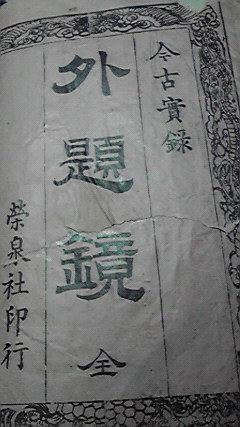 今古實録
外題鏡 全
榮泉社印行